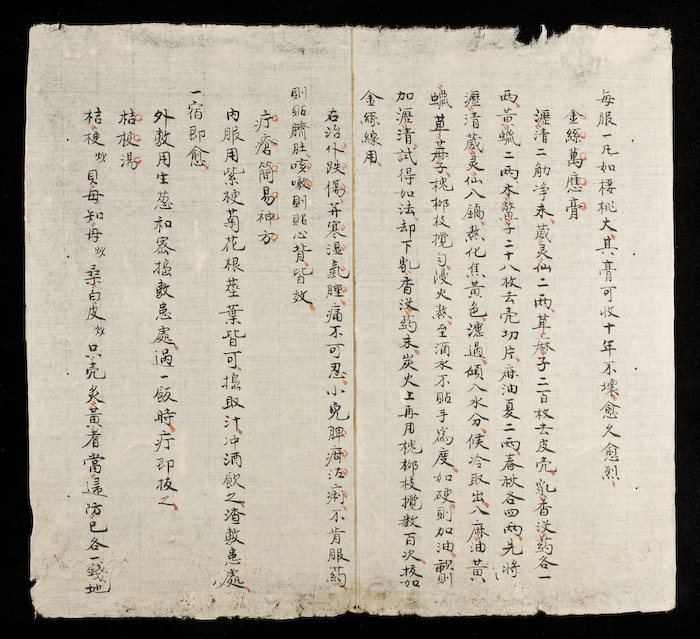 每服一凡如櫻桃大其膏可收十年不壞愈久愈烈
金絲萬應膏
瀝清二觔净末葳灵仙二兩草麻子二百枚去皮壳乳香没药各一
兩黃蠟二兩木鱉子二十八枚去壳切片麻油夏二兩春秋各四兩先將
瀝清葳灵仙八鍋熬化焦黃色濾過傾入水分候冷取出八麻油黃
蠟草麻子槐柳枝攪匀漫火熬至滴水不貼手爲度如硬則加油軟則
加瀝清試得加法却下乳香没药末炭火上再用槐柳枝攪数百次
金絲線用
右治外跌傷并寒湿氣腫痛不可忍小兒脾疳泻痢不肯服葯
則貼臍肚咳嗽則貼心背皆效
疔瘡簡易神方
內服用紫梗菊花根莖葉皆可搗取汁冲酒飲之渣敷患處
一宿即愈
外敷用生葱和蜜搗敷患處過一飯時疔即拔之
桔梗湯
桔梗炒貝母知母炒桑白皮炒只壳炙黃耆當歸防已各一錢地